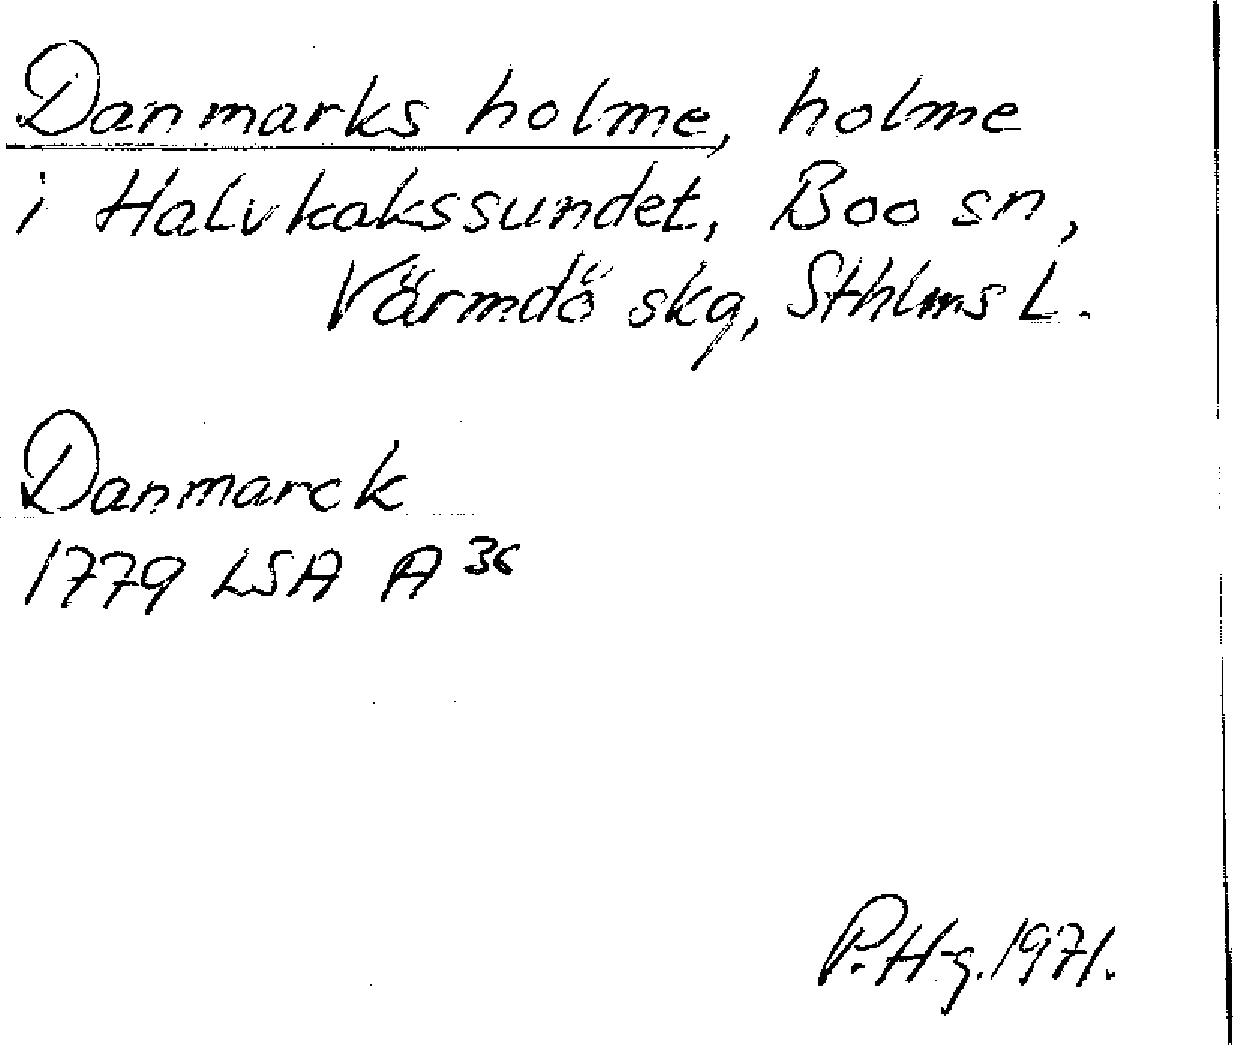 Danmarks holme, holme
i Halvkakssundet, Boo sn,
Värmdö skg, Sthlms L.
Danmarck
1779 LSA A 36
P. H-g. 1971.